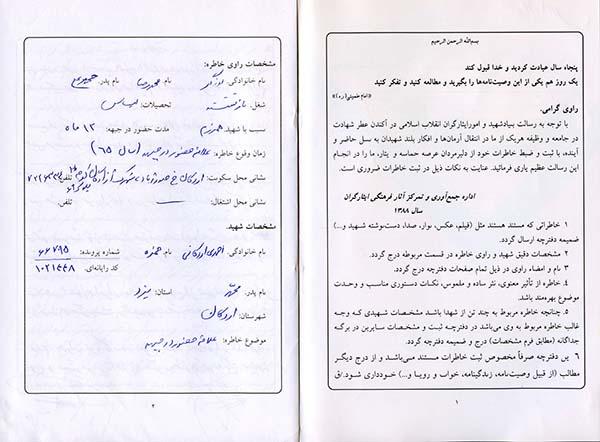 بسم‌الله الرحمن الرحیم
پنجاه سال عبادت کردید و خدا قبول کند
یک روز هم یکی از این وصیت‌نامه‌ها را بگیرید و مطالعه کنید و تفکر کنید
«امام خمینی(ره)»
راوی گرامی،
با توجه به رسالت بنیادشهید و امورایثارگران انقلاب اسلامی در آکندن عطر شهادت
در جامعه و وظیفه هریک از ما در انتقال آرمان‌ها و افکار بلند شهیدان به نسل حاضر و
آینده، با ثبت و ضبط خاطرات خود از دلیرمردان عرصه حماسه و ایثار، ما را در انجام
این رسالت عظیم یاری فرمائید. عنایت به نکات ذیل در ثبت خاطرات ضروری است.
اداره جمع‌آوری و تمرکز آثار فرهنگی ایثارگران
سال ۱۳۸۸
۱ خاطراتی که مستند هستند مثل (فیلم، عکس، نوار، صدا، دست‌نوشته شهید و...)
ضمیمه دفترچه ارسال گردد.
۲ مشخصات دقیق شهید و راوی خاطره در قسمت مربوطه درج گردد.
۳ نام و امضاء راوی در ذیل تمام صفحات دفترچه درج گردد.
۴ خاطره از تأثیر معنوی، نثر ساده و ملموس، نکات دستوری مناسب و وحدت
موضوع بهره‌مند باشد.
۵ چنانچه خاطره مربوط به چند تن از شهدا باشد مشخصات شهیدی که وجه
غالب خاطره مربوط به وی می‌باشد در دفترچه ثبت و مشخصات سایرین در برگه
جداگانه (مطابق فرم مشخصات) درج و ضمیمه دفترچه گردد.
۶ ین دفترچه صرفاً مخصوص ثبت خاطرات مستند می‌باشد و از درج دیگر
مطالب (از قبیل وصیت‌نامه، زندگینامه، خواب و رویا و...) خودداری شود./ق
۱
مشخصات راوی خاطره:
نام خانوادگی: نام: محمدرضا نام پدر:
شغل: بازنشسته تحصیلات: لیسانس
نسبت با شهید: همرزم مدت حضور در جبهه: ۱۲ ماه
زمان وقوع خاطره: حضور در جبهه (سال ۶۵)
نشانی محل سکونت: اردکان خ تلفن:
نشانی محل اشتغال: تلفن:
مشخصات شهید:
نام خانوادگی: احمدی اردکانی نام: حمزه شماره پرونده: ۶۶۷۹۵
کد رایانه‌ای: ۱۰۲۱۴۴۸
نام پدر: محمد استان: یزد
شهرستان: اردکان
موضوع خاطره: حضور در جبهه
۲